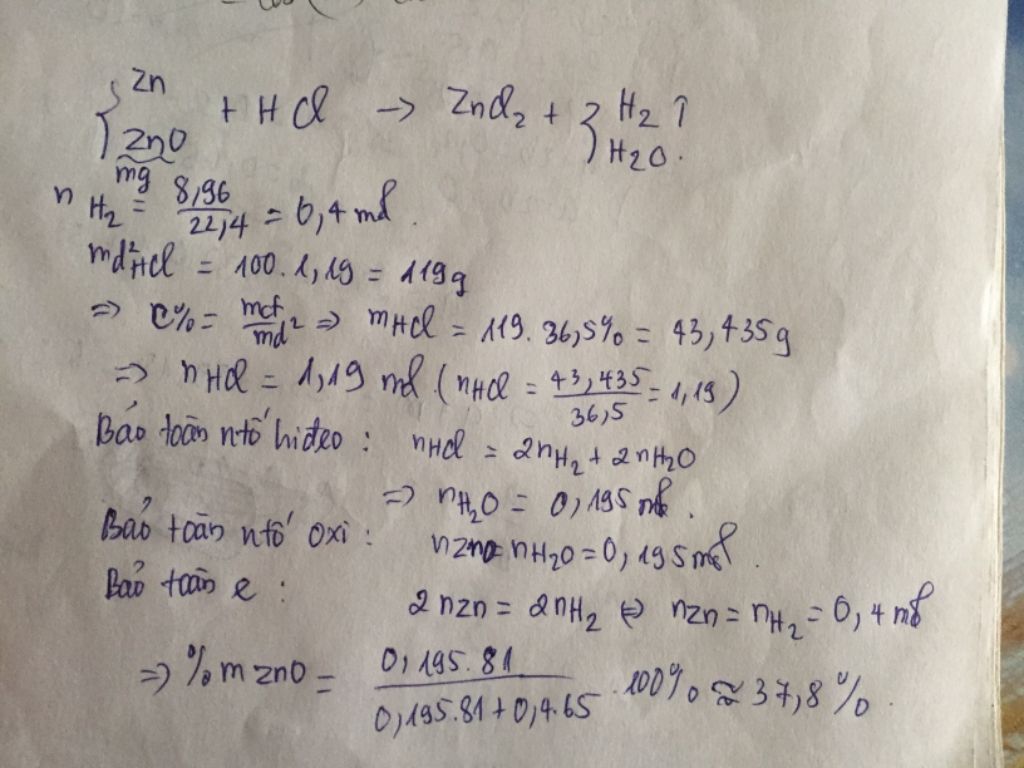 { Zn ZnO + HCl → ZnCl₂ + { H₂ ↑ H₂O.
mg
nH₂ = 8,96/22,4 = 0,4 mol.
md²HCl = 100. 1,19 = 119g
⇒ C% = mct/md² ⇒ mHCl = 119. 36,5% = 43,435g
⇒ nHCl = 1,19 mol (nHCl = 43,435/36,5 = 1,19)
Bảo toàn ntố hiđro : nHCl = 2nH₂ + 2nH₂O
⇒ nH₂O = 0,195 mol.
Bảo toàn ntố oxi : nZnO = nH₂O = 0,195 mol.
Bảo toàn e :
2nZn = 2nH₂ ⇔ nZn = nH₂ = 0,4 mol
⇒ %mZnO = 0,195.81/0,195.81+0,4.65 .100% ≈ 37,8%.